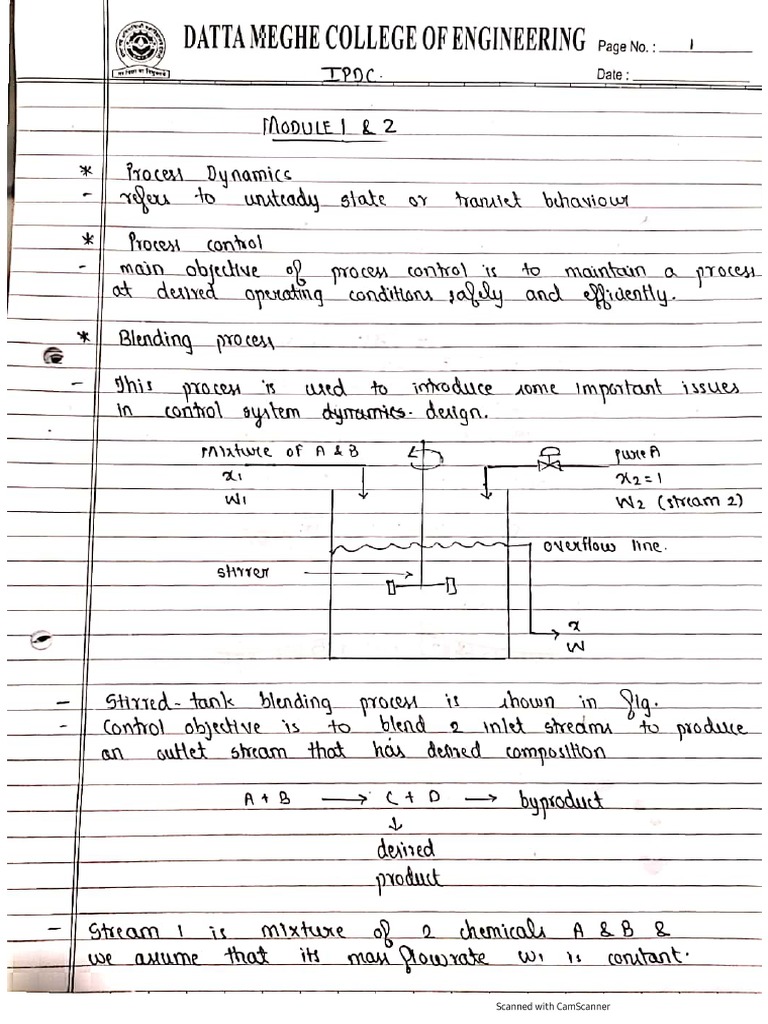 DATTA MEGHE COLLEGE OF ENGINEERING Page No. : 1
IPDC. Date :
MODULE 1 & 2
* Process Dynamics
- refers to unsteady state or transiet behaviour
* Process control
- main objective of process control is to maintain a process
at desired operating conditions safely and efficiently.
* Blending process
- This process is used to introduce some important issues
in control system dynamics. design.
Mixture of A & B
x1
W1
pure A
x2 = 1
W2 (stream 2)
overflow line.
stirrer
x
W
- Stirred-tank blending process is shown in fig.
- Control objective is to blend 2 inlet streams to produce
an outlet stream that has desired composition
A + B → C + D → byproduct
↓
desired
product
- Stream 1 is mixture of 2 chemicals A & B &
we assume that its mass flowrate W1 is constant.
Scanned with CamScanner